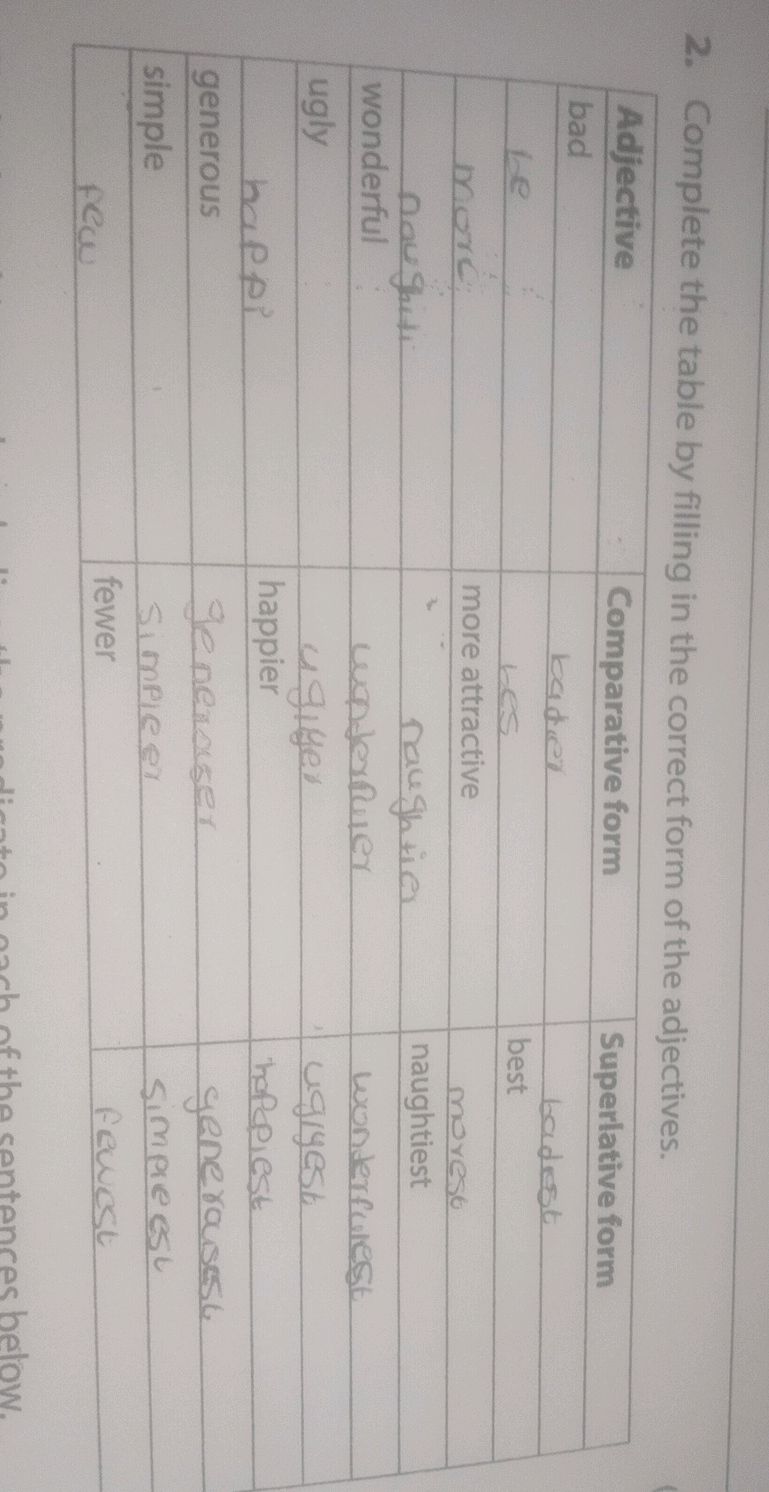 2. Complete the table by filling in the correct form of the adjectives.
Adjective Comparative form Superlative form
bad bader badest
be bes best
more more attractive morest
naughiti naughtier naughtiest
wonderful wonderfuler wonderfulest
ugly uglyer uglyest
happi happier happiest
generous generouser generousest
simple simpleer simpleest
few fewer fewest
the predicate in each of the sentences below.